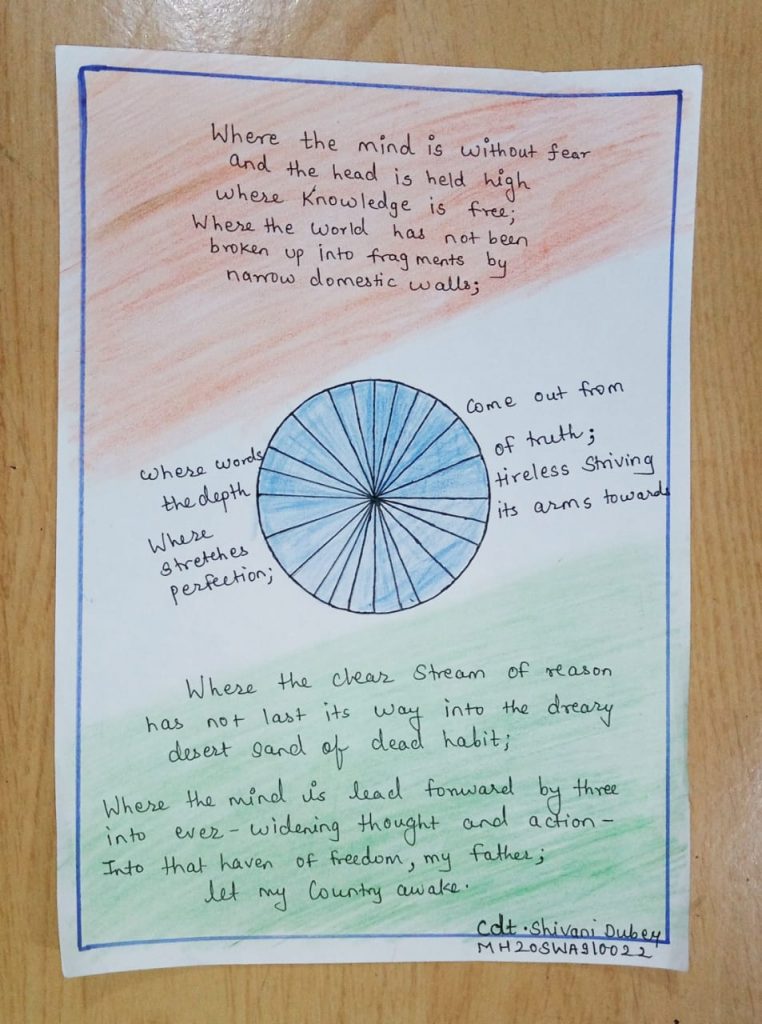 Where the mind is without fear
and the head is held high
where Knowledge is free;
Where the world has not been
broken up into fragments by
narrow domestic walls;
where words come out from
the depth of truth;
Where tireless Striving
stretches its arms towards
perfection;
Where the clear Stream of reason
has not last its way into the dreary
desert sand of dead habit;
Where the mind is lead forward by three
into ever-widening thought and action-
Into that haven of freedom, my father;
let my Country awake.
Cdt. Shivani Dubey
MH20SWA910022